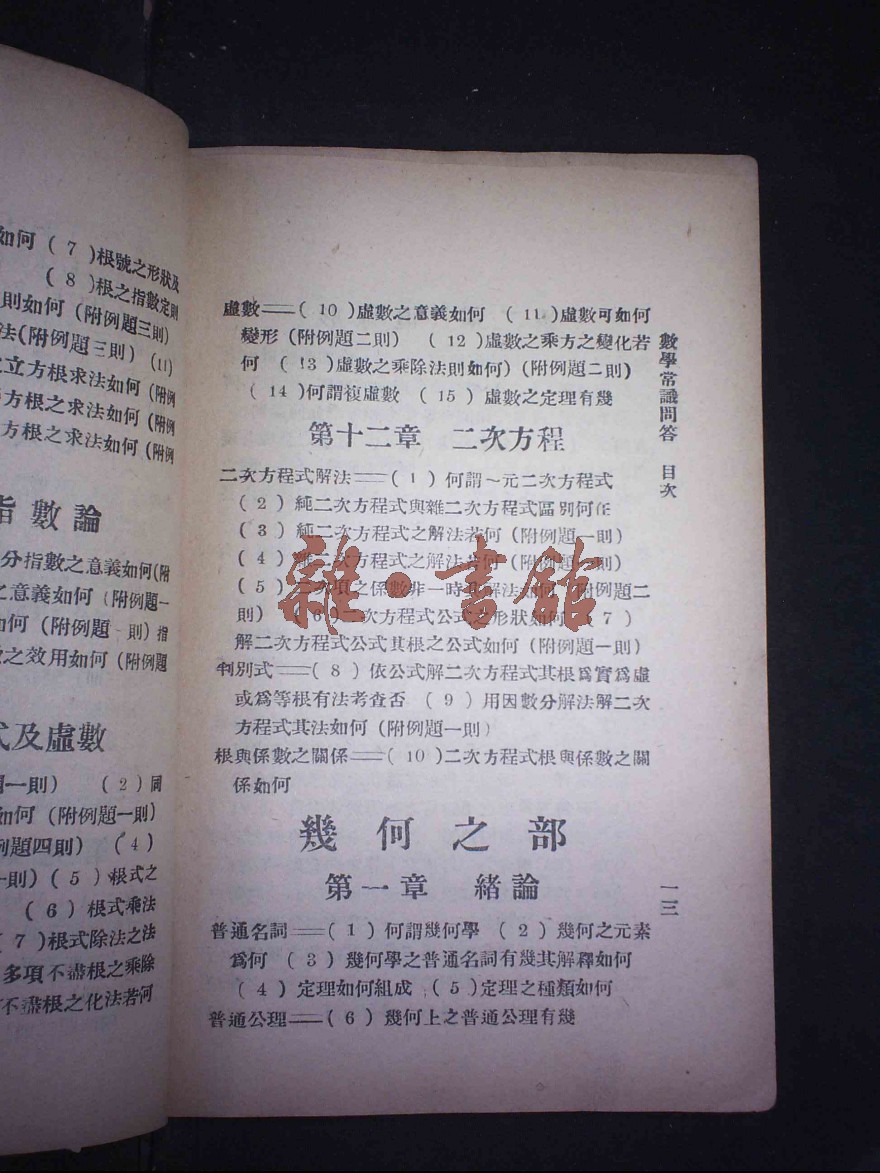 如何 ( 7 )根號之形狀及
( 8 )根之指數定則
則如何 (附例題三則)
法(附例題三則) (11)
立方根求法如何 (附例
方根之求法如何 (附例
方根之求法如何 (附例
指數論
分指數之意義如何(附
之意義如何 (附例題一
如何 (附例題一則) 指
數之效用如何 (附例題
式及虛數
一則) ( 2 ) 同
如何 (附例題一則)
例題四則) ( 4 )
一則) ( 5 ) 根式之
( 6 ) 根式乘法
( 7 )根式除法之法
多項不盡根之乘除
不盡根之化法若何
虛數——( 10 )虛數之意義如何 ( 11 )虛數可如何
變形 (附例題二則) ( 12 )虛數之乘方之變化若
何 ( 13 )虛數之乘除法則如何) (附例題二則)
( 14 )何謂複虛數 ( 15 ) 虛數之定理有幾
第十二章 二次方程
二次方程式解法——( 1 ) 何謂一元二次方程式
( 2 ) 純二次方程式與雜二次方程式區別何在
( 3 ) 純二次方程式之解法若何 (附例題一則)
( 4 ) 雜二次方程式之解法若何 (附例題一則)
( 5 ) 二次項之係數非一時其解法如何 (附例題二
則) ( 6 )二次方程式公式之形狀如何 ( 7 )
解二次方程式公式其根之公式如何 (附例題一則)
判別式——( 8 ) 依公式解二次方程式其根爲實爲虛
或爲等根有法考查否 ( 9 ) 用因數分解法解二次
方程式其法如何 (附例題一則)
根與係數之關係——( 10 )二次方程式根與係數之關
係如何
幾何之部
第一章 緒論
普通名詞——( 1 ) 何謂幾何學 ( 2 ) 幾何之元素
爲何 ( 3 ) 幾何學之普通名詞有幾其解釋如何
( 4 ) 定理如何組成 ( 5 )定理之種類如何
普通公理——( 6 ) 幾何上之普通公理有幾
數學常識問答 目次
一三
雜·書館